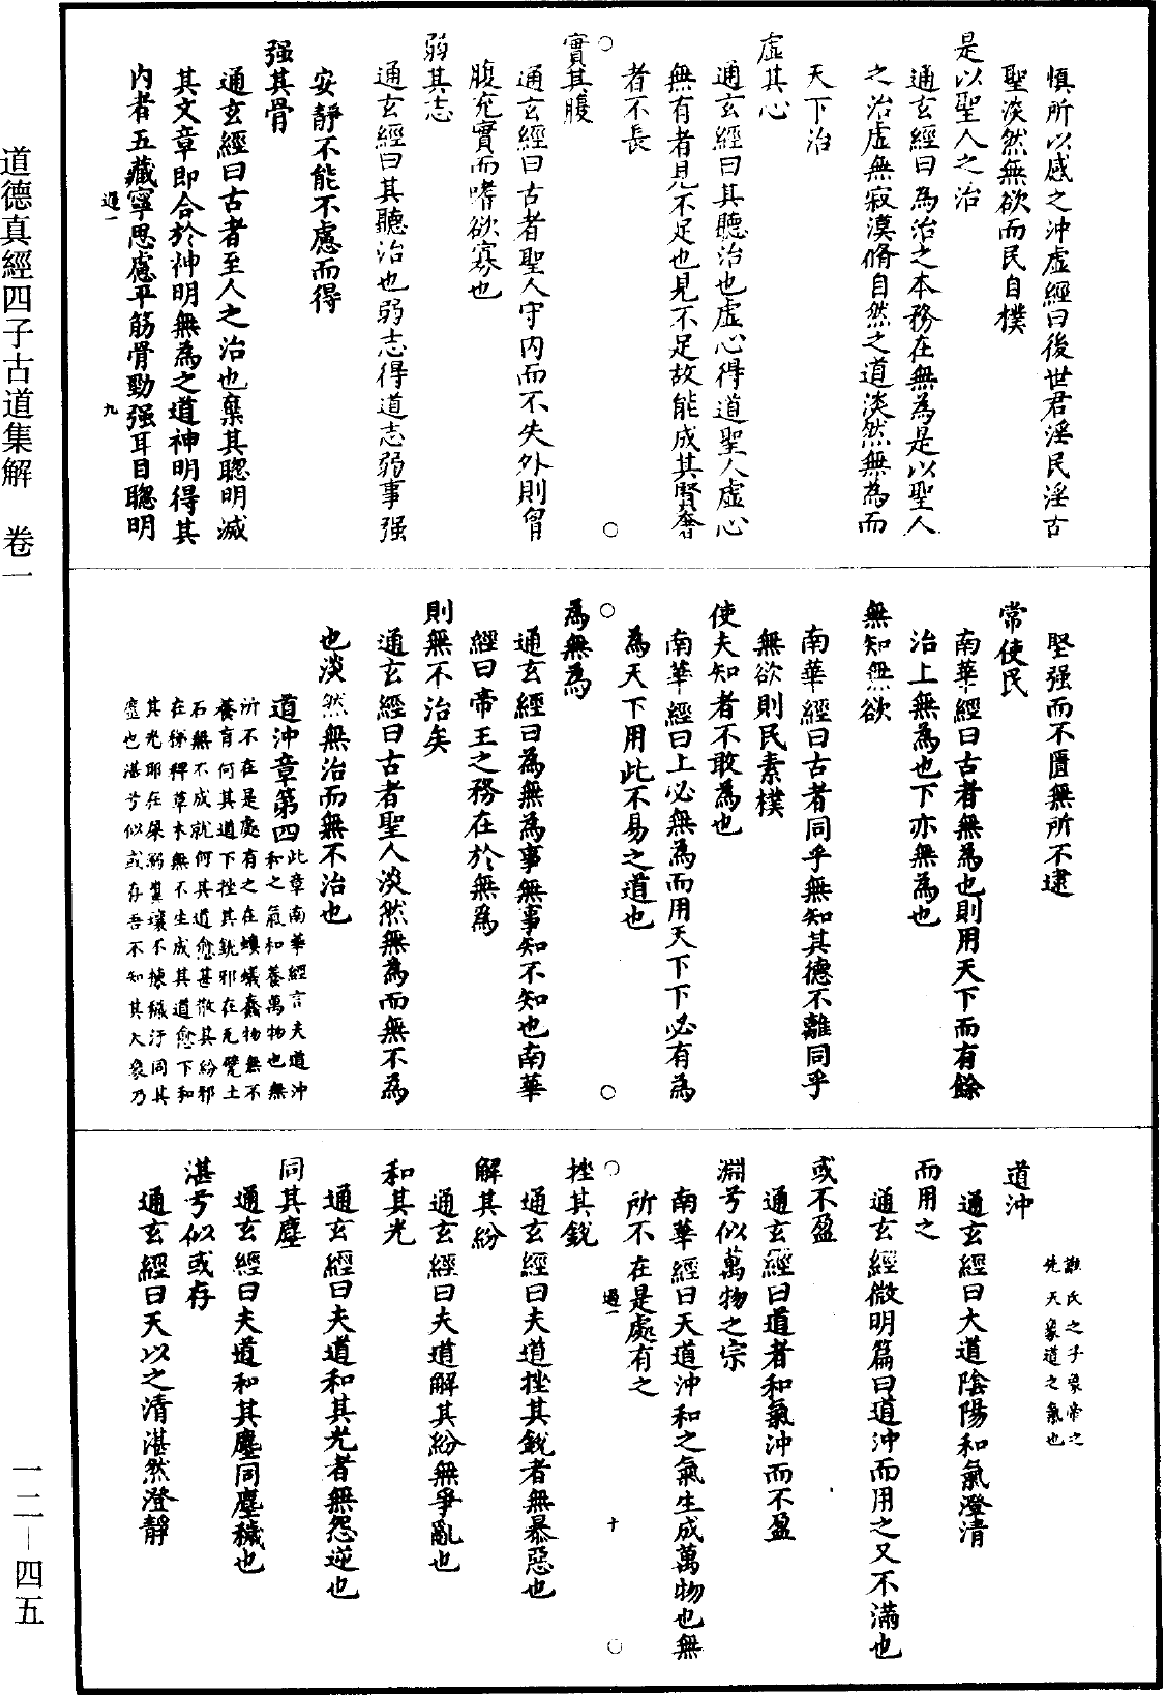 慎所以感之沖虛經曰後世君淫民淫古
聖淡然無欲而民自樸
是以聖人之治
通玄經曰為治之本務在無為是以聖人
之治虛無寂漠脩自然之道淡然無為而
天下治
虛其心
通玄經曰其聽治也虛心得道聖人虛心
無有者見不足也見不足故能成其賢奢
者不長
實其腹
通玄經曰古者聖人守内而不失外則胷
腹充實而嗜欲寡也
弱其志
通玄經曰其聽治也弱志得道志弱事强
安靜不能不慮而得
强其骨
通玄經曰古者至人之治也棄其聰明滅
其文章即合於神明無為之道神明得其
内者五藏寧思慮平筋骨勁强耳目聰明
過一 九
堅强而不匱無所不逮
常使民
南華經曰古者無為也則用天下而有餘
治上無為也下亦無為也
無知無欲
南華經曰古者同乎無知其德不離同乎
無欲則民素樸
使夫知者不敢為也
南華經曰上必無為而用天下下必有為
為天下用此不易之道也
為無為
通玄經曰為無為事無事知不知也南華
經曰帝王之務在於無為
則無不治矣
通玄經曰古者聖人淡然無為而無不為
也淡然無治而無不治也
道沖章第四
此章南華經言夫道沖
和之氣和養萬物也無
所不在是處有之在螻蟻蠢物無不
養育何其道下挫其銳邪在瓦甓土
石無不成就何其道愈甚散其紛邪
在稊稗草木無不生成其道愈下和
其光耶在屎溺糞壤不揀穢汙同其
塵也湛兮似或存吾不知其大象乃
誰氏之子象帝之
先天象道之氣也
道沖
通玄經曰大道陰陽和氣澄清
而用之
通玄經微明篇曰道沖而用之又不滿也
或不盈
通玄經曰道者和氣沖而不盈
淵兮似萬物之宗
南華經曰天道沖和之氣生成萬物也無
所不在是處有之
過一 十
挫其銳
通玄經曰夫道挫其銳者無暴惡也
解其紛
通玄經曰夫道解其紛無爭亂也
和其光
通玄經曰夫道和其光者無怨逆也
同其塵
通玄經曰夫道和其塵同塵穢也
湛兮似或存
通玄經曰天以之清湛然澄靜
道德真經四子古道集解 卷一
一二—四五